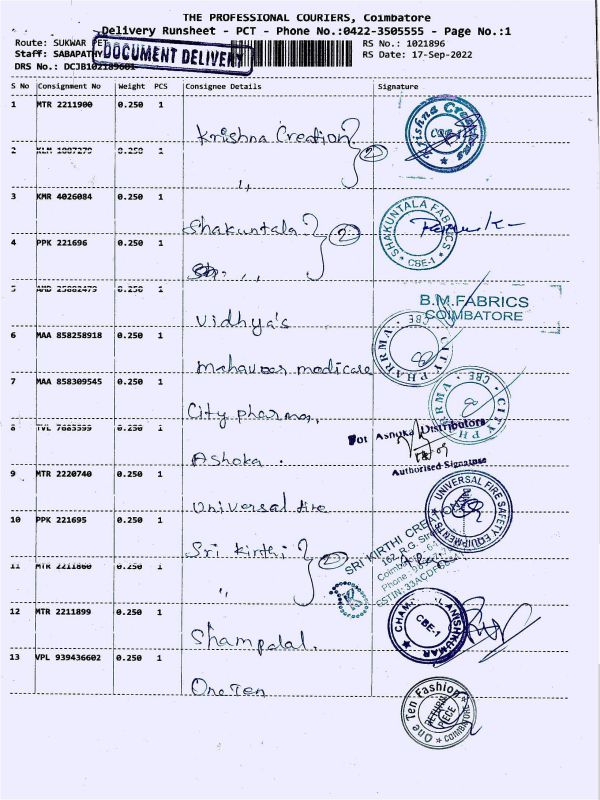 THE PROFESSIONAL COURIERS, Coimbatore
Delivery Runsheet - PCT - Phone No.:0422-3505555 - Page No.:1
Route: SUKWAR PET
RS No.: 1021896
Staff: SABAPATHY
DOCUMENT DELIVERY
RS Date: 17-Sep-2022
DRS No.: DCJB102189601
S No Consignment No Weight PCS Consignee Details Signature
1 MTR 2211900 0.250 1
Krishna Creation 2
Krishna Creations
CBE-1
2 0.250 1
,,
3 KMR 4026084 0.250 1
Shakuntala 2
SHAKUNTALA FABRICS
CBE-1
4 PPK 221696 0.250 1
,,
5 AMD 25882479 0.250 1
Vidhya's
B.M.FABRICS
COIMBATORE
6 MAA 858258918 0.250 1
Mahaveer medicare
CITY PHARRMA CBE
7 MAA 858309545 0.250 1
City pharma,
CITY PHARRMA CBE
8 TVL 0.250 1
Ashoka .
For Ashoka Distributors
Authorised Signature
9 MTR 2220740 0.250 1
Universal fire
UNIVERSAL FIRE SAFETY EQUIPMENTS
10 PPK 221695 0.250 1
Sri Kirthi 2
SRI KIRTHI CREATION
162, R.G. Street
11 MTR 2211860 0.250 1
,,
12 MTR 2211899 0.250 1
Shampalal.
CBE-1
13 VPL 939436602 0.250 1
One Ten
One Ten Fashion
RETURN PIECE
COIMBATORE